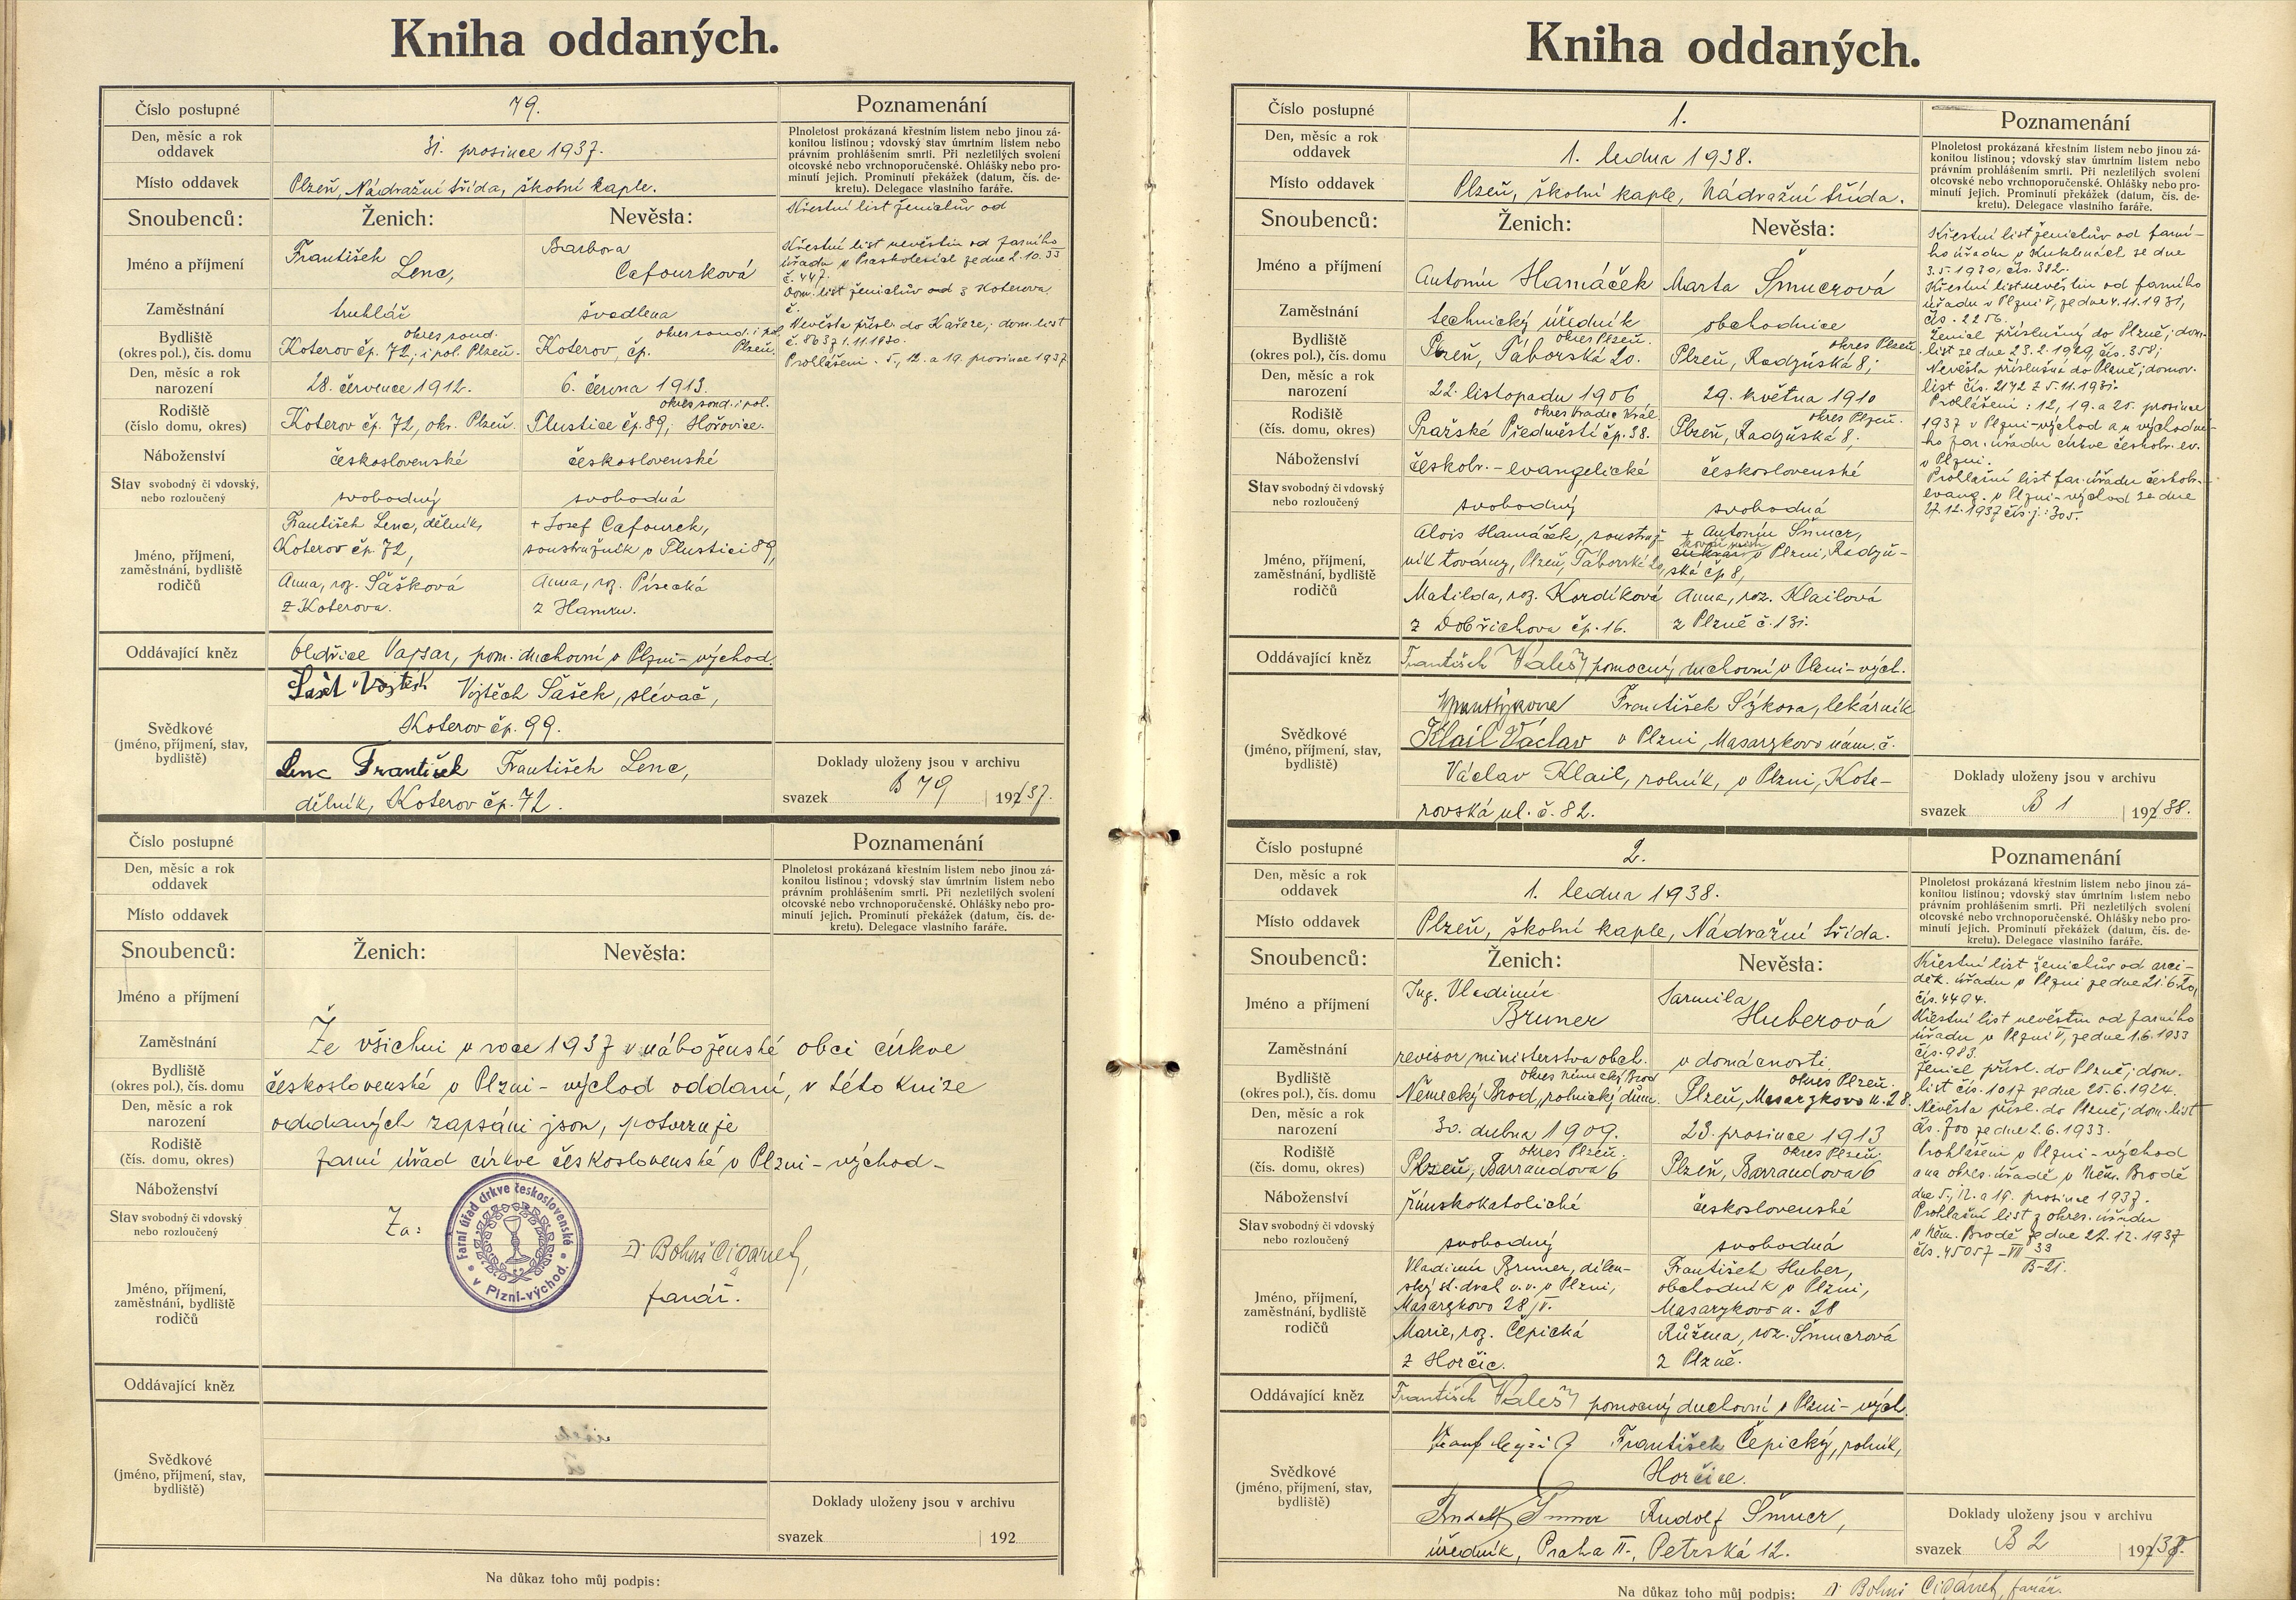 Kniha oddaných.
Číslo postupné
79.
Poznamenání
Den, měsíc a rok
oddavek
31. prosince 1937.
Místo oddavek
Plzeň, Nádražní třída, školní kaple.
Plnoletost prokázaná křestním listem nebo jinou zá-
konitou listinou; vdovský stav úmrtním listem nebo
právním prohlášením smrti. Při nezletilých svolení
otcovské nebo vrchnoporučenské. Ohlášky nebo pro-
minutí jejich. Prominutí překážek (datum, čís. de-
kretu). Delegace vlastního faráře.
Snoubenců:
Ženich:
Nevěsta:
Křestní list ženichův od
Křestní list nevěstin od farního
úřadu v Praskolesích ze dne 2.10.33
č. 447.
Dom. list ženichův od z Koterova,
č.
Nevěsta přísl. do Kařeze; dom. list
č. 8637 1.11.1930.
Prohlášeni . 5., 12. a 19. prosince 1937
Jméno a příjmení
František
Lenc,
Barbora
Cafourková
Zaměstnání
truhlář
švadlena
Bydliště
(okres pol.), čís. domu
okres soud.
Koterov čp. 72, i pol. Plzeň.
okres soud. i pol.
Koterov, čp. Plzeň.
Den, měsíc a rok
narození
28. července 1912.
6. června 1913.
Rodiště
(číslo domu, okres)
Koterov čp. 72, okr. Plzeň.
okres soud. i pol.
Tlustice čp. 89, Hořovice.
Náboženství
československé
československé
Stav svobodný či vdovský,
nebo rozloučený
svobodný
svobodná
Jméno, příjmení,
zaměstnání, bydliště
rodičů
František Lenc, dělník,
Koterov čp. 72,
Anna, roz. Šašková
z Koterova.
+ Josef Cafourek,
soustružník v Tlustici 89,
Anna, roz. Písecká
z Hamru.
Oddávající kněz
Oldřich Vajsar, pom. duchovní v Plzni-východ.
Svědkové
(jméno, příjmení, stav,
bydliště)
Vojtěch Šašek, slévač,
Koterov čp. 99.
Lenc František František Lenc,
dělník, Koterov čp. 72.
Doklady uloženy jsou v archivu
svazek B 79 192/37.
Číslo postupné
Poznamenání
Den, měsíc a rok
oddavek
Místo oddavek
Plnoletost prokázaná křestním listem nebo jinou zá-
konitou listinou; vdovský stav úmrtním listem nebo
právním prohlášením smrti. Při nezletilých svolení
otcovské nebo vrchnoporučenské. Ohlášky nebo pro-
minutí jejich. Prominutí překážek (datum, čís. de-
kretu). Delegace vlastního faráře.
Snoubenců:
Ženich:
Nevěsta:
Jméno a příjmení
Zaměstnání
Bydliště
(okres pol.), čís. domu
Den, měsíc a rok
narození
Rodiště
(čís. domu, okres)
Náboženství
Stav svobodný či vdovský
nebo rozloučený
Jméno, příjmení,
zaměstnání, bydliště
rodičů
Oddávající kněz
Svědkové
(jméno, příjmení, stav,
bydliště)
Že všichni v roce 1937 v náboženské obci církve
československé v Plzni-východ oddaní, v této knize
oddaných zapsáni jsou, potvrzuje
farní úřad církve československé v Plzni-východ-
Za:
Farní úřad církve československé
v Plzni-východ.
Dr Bohuš Cigánek,
farář.
Doklady uloženy jsou v archivu
svazek 192
Na důkaz toho můj podpis:
Kniha oddaných.
Číslo postupné
1.
Poznamenání
Den, měsíc a rok
oddavek
1. ledna 1938.
Místo oddavek
Plzeň, školní kaple, Nádražní třída.
Plnoletost prokázaná křestním listem nebo jinou zá-
konitou listinou; vdovský stav úmrtním listem nebo
právním prohlášením smrti. Při nezletilých svolení
otcovské nebo vrchnoporučenské. Ohlášky nebo pro-
minutí jejich. Prominutí překážek (datum, čís. de-
kretu). Delegace vlastního faráře.
Snoubenců:
Ženich:
Nevěsta:
Křestní list ženichův od farní-
ho úřadu v Kuklenách ze dne
3.5.1930, čís. 382.
Křestní list nevěstin od farního
úřadu v Plzni V, ze dne 4.11.1931,
čís. 2256.
Ženich příslušný do Plzně; dom.
list ze dne 23.2.1929, čís. 358;
Nevěsta příslušná do Plzně; domov.
list čís. 2172 z 5.11.1931.
Prohlášeni: 12, 19. a 25. prosince
1937 v Plzni-východ a u východní-
ho far. úřadu církve českobr. ev.
v Plzni.
Prohlašní list far. úřadu českobr.
evang. v Plzni-východ ze dne
27.12.1937 čís.j.: 305.
Jméno a příjmení
Antonín Hamáček
Marta Šmucrová
Zaměstnání
technický úředník
obchodnice
Bydliště
(okres pol.), čís. domu
okres Plzeň.
Plzeň, Táborská 20.
okres Plzeň
Plzeň, Radyňská 8;
Den, měsíc a rok
narození
22. listopadu 1906
29. května 1910
Rodiště
(čís. domu, okres)
okres Hradec Král.
Pražské Předměstí čp. 38.
okres Plzeň.
Plzeň, Radyňská 8.
Náboženství
českobr.-evangelické
československé
Stav svobodný či vdovský
nebo rozloučený
svobodný
svobodná
Jméno, příjmení,
zaměstnání, bydliště
rodičů
Alois Hamáček, soustruž-
ník továrny, Plzeň, Táborská 20,
Matilda, roz. Kordíková
z Dobřichova čp. 16.
+ Antonín Šmucr,
v Plzni, Radyň-
ská čp 8,
Anna, roz. Klailová
z Plzně č. 131.
Oddávající kněz
František Kaleš, pomocný duchovní v Plzni-vých.
Svědkové
(jméno, příjmení, stav,
bydliště)
František Sýkora, lekárník
Klail Václav v Plzni, Masarykovo nám. č.
Václav Klail, rolník, v Plzni, Kote-
rovská ul. č. 82.
Doklady uloženy jsou v archivu
svazek B 1 192/38.
Číslo postupné
2.
Poznamenání
Den, měsíc a rok
oddavek
1. ledna 1938.
Místo oddavek
Plzeň, školní kaple, Nádražní třída.
Plnoletost prokázaná křestním listem nebo jinou zá-
konitou listinou; vdovský stav úmrtním listem nebo
právním prohlášením smrti. Při nezletilých svolení
otcovské nebo vrchnoporučenské. Ohlášky nebo pro-
minutí jejich. Prominutí překážek (datum, čís. de-
kretu). Delegace vlastního faráře.
Snoubenců:
Ženich:
Nevěsta:
Křestní list ženichův od arci-
děk. úřadu v Plzni ze dne 21.6.20,
čís. 4494.
Křestní list nevěstin od farního
úřadu v Plzni V, ze dne 1.6.1933
čís. 983.
Ženich přísl. do Plzně; dom.
list čís. 1017 ze dne 25.6.1924.
Nevěsta přísl. do Plzně; dom. list
čís. 700 ze dne 2.6.1933.
Prohlášeni v Plzni-východ
a na okres. úřadě v Něm. Brodě
dne 5., 12. a 19. prosince 1937.
Prohlašní list z okres. úřadu
v Něm. Brodě ze dne 22.12.1937
čís. 45057-VII 33
B-21.
Jméno a příjmení
Ing. Vladimír
Bruner
Jarmila
Huberová
Zaměstnání
revisor ministerstva obch.
v domácnosti.
Bydliště
(okres pol.), čís. domu
okres Německý Brod
Německý Brod, rolnický dům.
okres Plzeň.
Plzeň, Masarykovo n. 28.
Den, měsíc a rok
narození
30. dubna 1909.
23. prosince 1913
Rodiště
(čís. domu, okres)
okres Plzeň.
Plzeň, Barrandova 6
okres Plzeň.
Plzeň, Barrandova 6
Náboženství
římskokatolické
československé
Stav svobodný či vdovský
nebo rozloučený
svobodný
svobodná
Jméno, příjmení,
zaměstnání, bydliště
rodičů
Vladimír Bruner, dílen-
ský v.v. v Plzni,
Masarykovo 28
Marie, roz. Čepická
z Horčic.
František Huber,
obchodník v Plzni,
Masarykovo n. 28
Růžena, roz. Šmucrová
z Plzně.
Oddávající kněz
František Kaleš, pomocný duchovní v Plzni-vých.
Svědkové
(jméno, příjmení, stav,
bydliště)
František Čepický, rolník,
Horčice.
Rudolf Šmucr,
úředník, Praha II., Petrská 12.
Doklady uloženy jsou v archivu
svazek B 2 192/38.
Na důkaz toho můj podpis: Dr Bohuš Cigánek, farář.